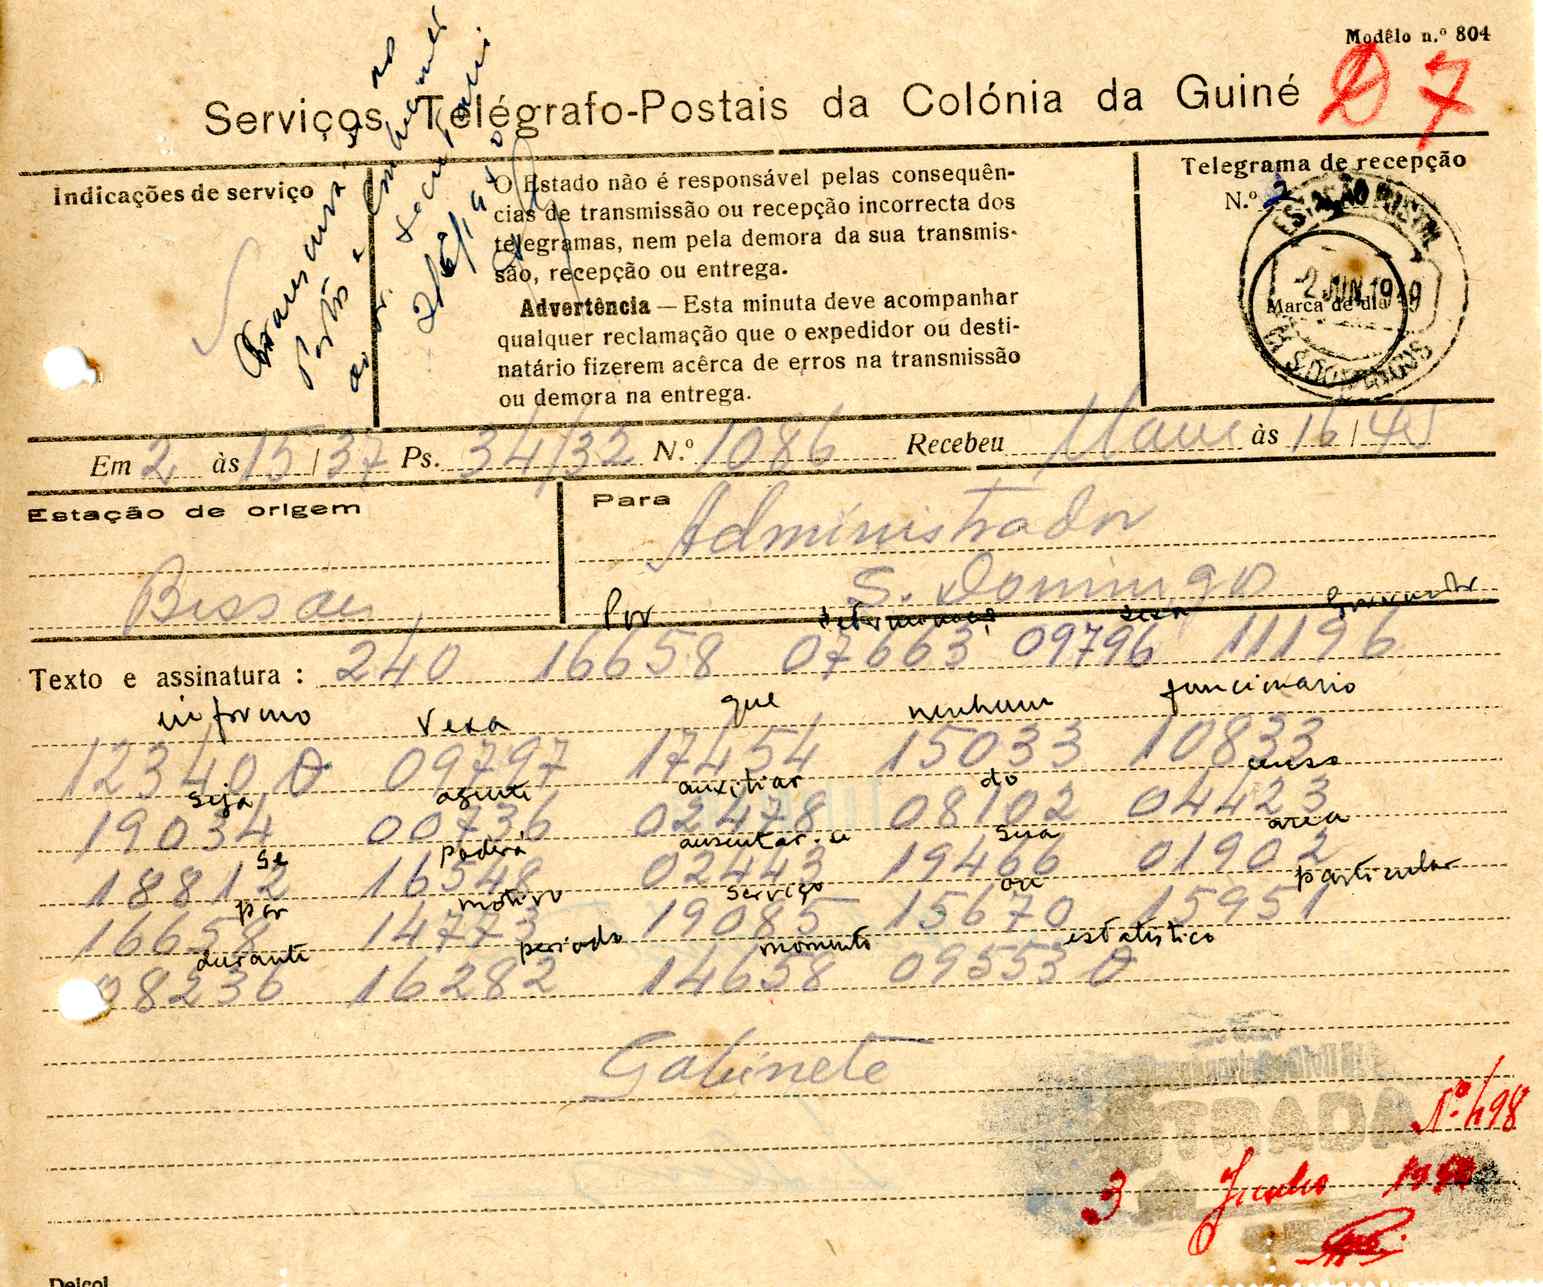 Modêlo n.º 804
D 7
Serviços Telégrafo-Postais da Colónia da Guiné
Indicações de serviço
O Estado não é responsável pelas consequên-
cias de transmissão ou recepção incorrecta dos
telegramas, nem pela demora da sua transmis-
são, recepção ou entrega.
Advertência — Esta minuta deve acompanhar
qualquer reclamação que o expedidor ou desti-
natário fizerem acêrca de erros na transmissão
ou demora na entrega.
Telegrama de recepção
N.º 2
ESTAÇÃO POSTAL
-2 JUN. 19
Marca de dia
Em 2 às 15/37 Ps. 34/32 N.º 1086 Recebeu às 16/45
Estação de origem
Bissau
Para
Administrador
S. Domingo
Por determinação Sexa Governador
Texto e assinatura : 240 16658 07663 09796 11196
informo Vexa que nenhum funcionario
12340 09797 17454 15033 10833
seja agente auxiliar do censo
19034 00736 02478 08102 04423
se poderá ausentar-se sua area
18812 16548 02443 19466 01902
por motivo serviço ou particular
16658 14773 19085 15670 15951
durante periodo momento estatistico
08236 16282 14658 09553
Gabinete
N.º 498
3 Junho 1950
Deicol